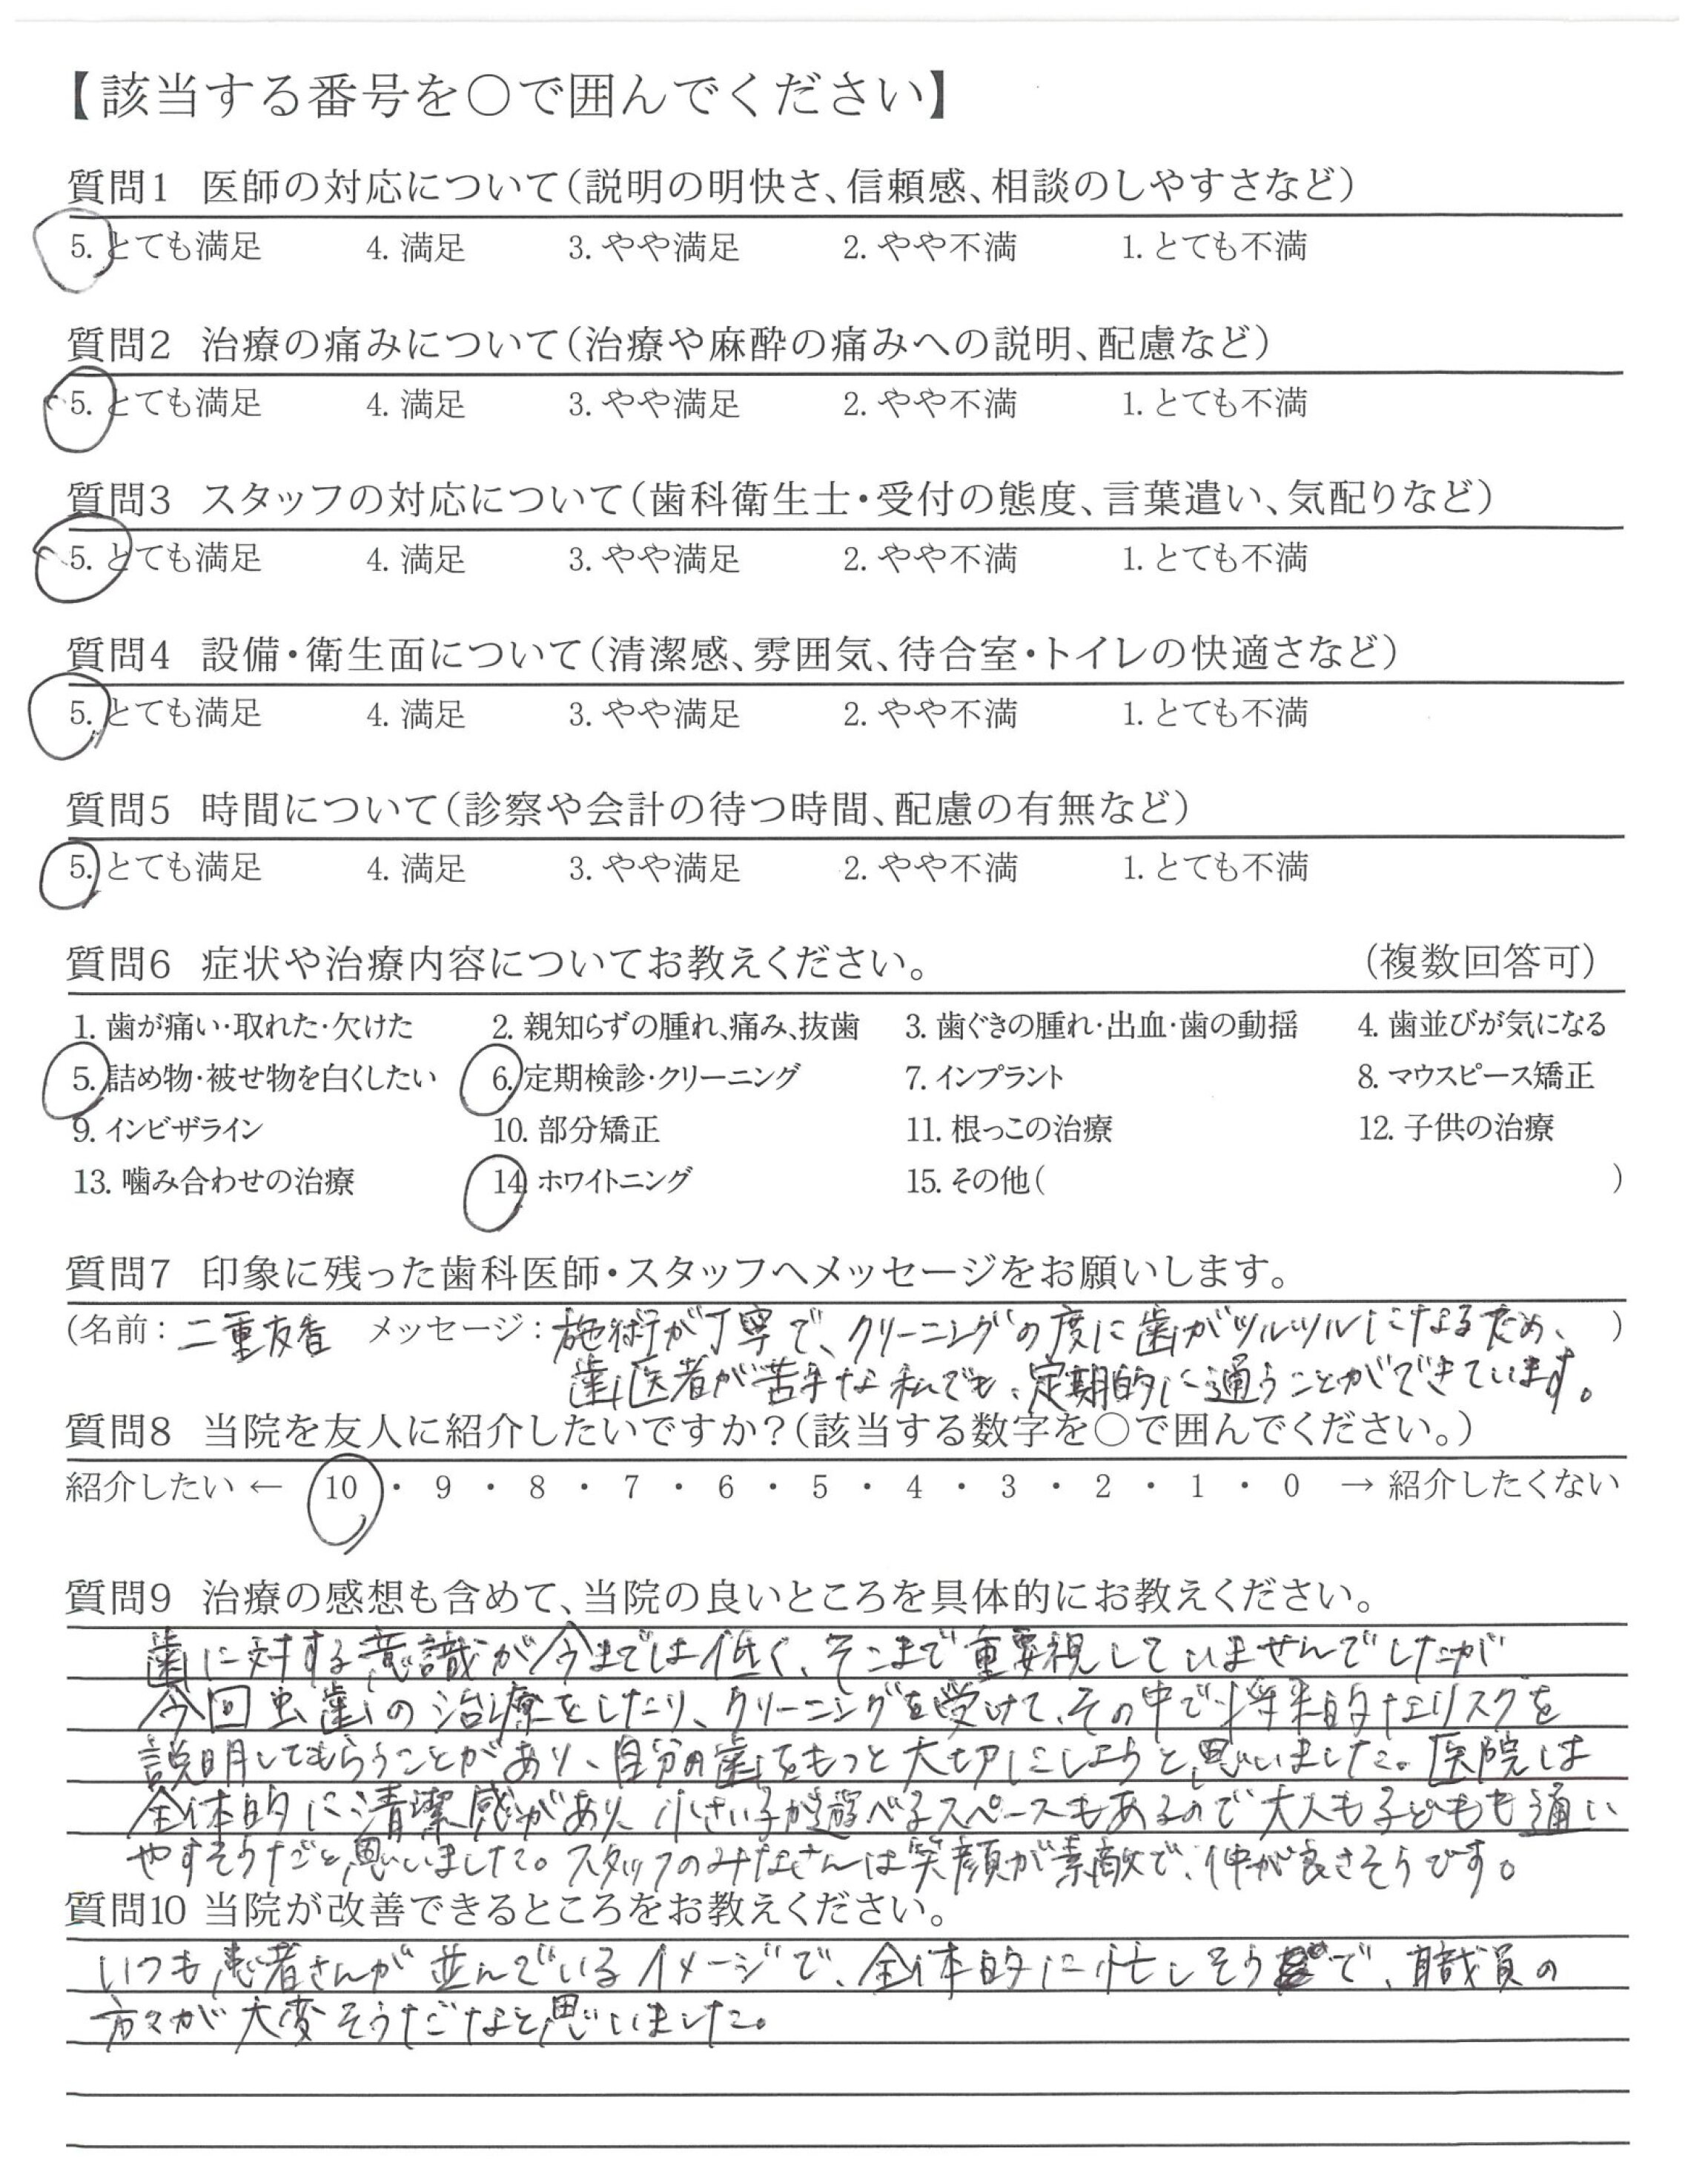 【該当する番号を○で囲んでください】
質問1 医師の対応について(説明の明快さ、信頼感、相談のしやすさなど)
5. とても満足 4. 満足 3. やや満足 2. やや不満 1. とても不満
質問2 治療の痛みについて(治療や麻酔の痛みへの説明、配慮など)
5. とても満足 4. 満足 3. やや満足 2. やや不満 1. とても不満
質問3 スタッフの対応について(歯科衛生士・受付の態度、言葉遣い、気配りなど)
5. とても満足 4. 満足 3. やや満足 2. やや不満 1. とても不満
質問4 設備・衛生面について(清潔感、雰囲気、待合室・トイレの快適さなど)
5. とても満足 4. 満足 3. やや満足 2. やや不満 1. とても不満
質問5 時間について(診察や会計の待つ時間、配慮の有無など)
5. とても満足 4. 満足 3. やや満足 2. やや不満 1. とても不満
質問6 症状や治療内容についてお教えください。 (複数回答可)
1. 歯が痛い・取れた・欠けた 2. 親知らずの腫れ、痛み、抜歯 3. 歯ぐきの腫れ・出血・歯の動揺 4. 歯並びが気になる
5. 詰め物・被せ物を白くしたい 6. 定期検診・クリーニング 7. インプラント 8. マウスピース矯正
9. インビザライン 10. 部分矯正 11. 根っこの治療 12. 子供の治療
13. 噛み合わせの治療 14. ホワイトニング 15. その他( )
質問7 印象に残った歯科医師・スタッフへメッセージをお願いします。
(名前: 二重友香 メッセージ: 施術が丁寧で、クリーニングの度に歯がツルツルになるため、 )
歯医者が苦手な私でも、定期的に通うことができています。
質問8 当院を友人に紹介したいですか?(該当する数字を○で囲んでください。)
紹介したい ← 10 ・ 9 ・ 8 ・ 7 ・ 6 ・ 5 ・ 4 ・ 3 ・ 2 ・ 1 ・ 0 → 紹介したくない
質問9 治療の感想も含めて、当院の良いところを具体的にお教えください。
歯に対する意識が今までは低く、そこまで重要視していませんでしたが
今回虫歯の治療をしたり、クリーニングを受けて、その中で将来的なリスクを
説明してもらうことがあり、自分の歯をもっと大切にしようと思いました。医院は
全体的に清潔感があり、小さい子が遊べるスペースもあるので大人も子どもも通い
やすそうだと思いました。スタッフのみなさんは笑顔が素敵で、仲が良さそうです。
質問10 当院が改善できるところをお教えください。
いつも患者さんが並んでいるイメージで、全体的に忙しそうで、職員の
方々が大変そうだなと思いました。